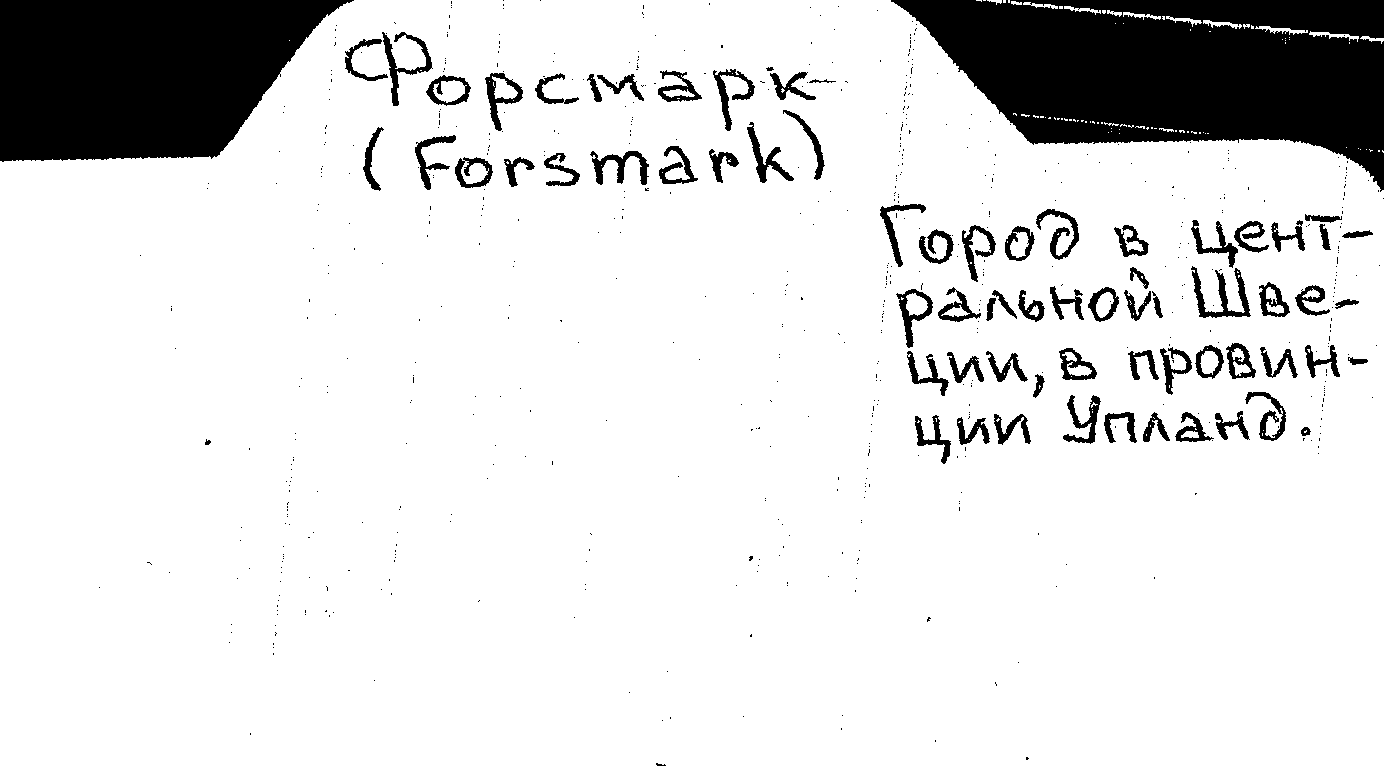 Форсмарк
(Forsmark)
Город в цент-
ральной Шве-
ции, в провин-
ции Упланд.